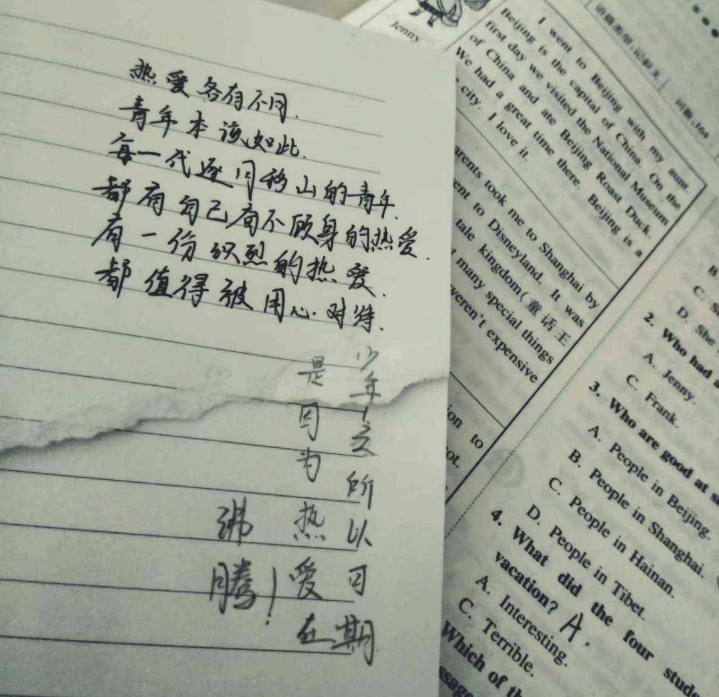 热爱各有不同.
青年本该如此.
每一代逐日移山的青年.
都有自己奋不顾身的热爱.
有一份炽烈的热爱.
都值得被用心对待.
少年之所以可期
是因为热爱在
沸腾！
Jenny
I went to Beijing with my aunt
Beijing is the capital of China. On the
first day we visited the National Museum
of China and ate Beijing Roast Duck.
We had a great time there. Beijing is a
city. I love it.
arents took me to Shanghai by
ent to Disneyland. It was
tale kingdom(童话王
many special things
weren't expensive
ion to
ot.
2. Who had a
A. Jenny.
C. Frank.
3. Who are good at s
A. People in Beijing.
B. People in Shanghai.
C. People in Hainan.
D. People in Tibet.
4. What did the four stude
vacation? A.
A. Interesting.
C. Terrible.
Which of th